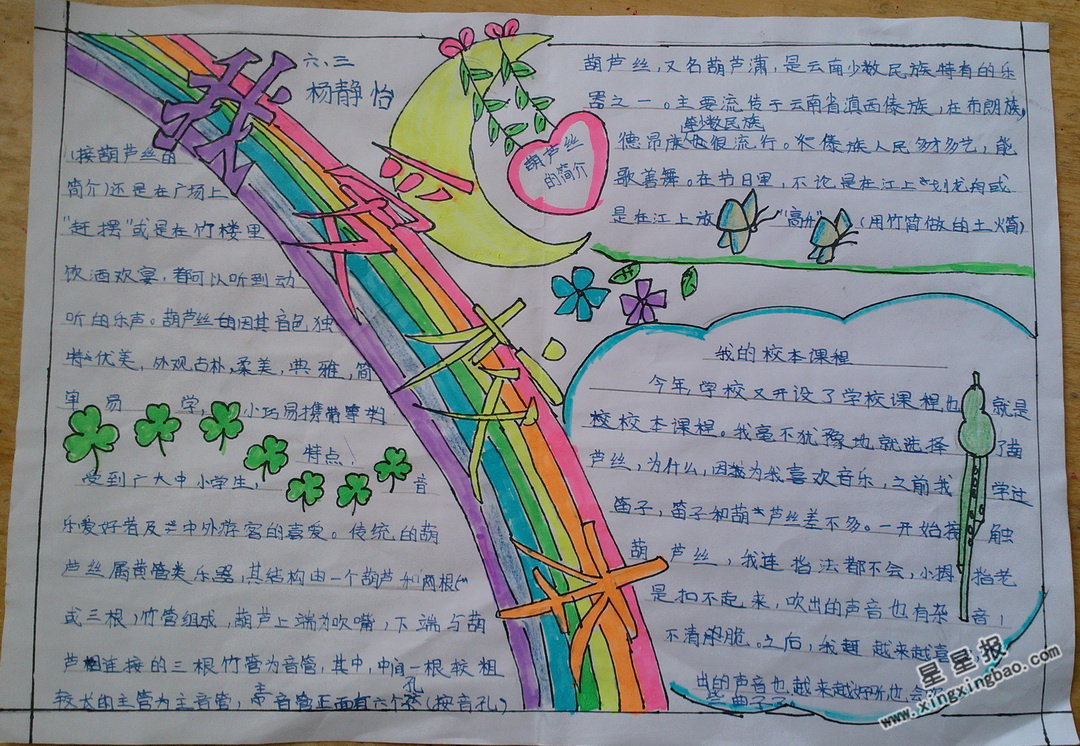 我有多学乐
六、三
杨静怡
葫芦丝
的简介
葫芦丝,又名葫芦潇,是云南少数民族特有的乐
器之一。主要流传于云南省滇西傣族,在布朗族,
德昂族等少数民族也很流行。傣族人民多才多艺,能
歌善舞。在节日里,不论是在江上划龙舟或
是在江上放“高升”(用竹筒做的土火箭)
(接葫芦丝的
简介)还是在广场上
“赶摆”或是在竹楼里
饮洒欢宴,都可以听到动
听的乐声。葫芦丝的因其音色独
特优美,外观古朴,柔美,典雅,简
单易学,小巧易携带等
特点!
受到广大中小学生,音
乐爱好者及中外游客的喜爱。传统的葫
芦丝属黄管类乐器,其结构由一个葫芦和两根(
或三根)竹管组成,葫芦上端为吹嘴,下端与葫
芦相连接的三根竹管为音管,其中,中间一根较粗
较长的主管为主音管,主音管正面有六个孔(按音孔)
我的校本课程
今年,学校又开设了学校课程也就是
校本课程。我毫不犹豫地就选择了葫
芦丝,为什么,因为我喜欢音乐,之前我学过
笛子,笛子和葫芦丝差不多。一开始接触
葫芦丝,我连指法都不会,小拇指老
是扣不起来,吹出的声音也有杂音,
不清脆。之后,我越来越喜
出的声音也越来越好听也会
些曲子
星星报
www.xingxingbao.com